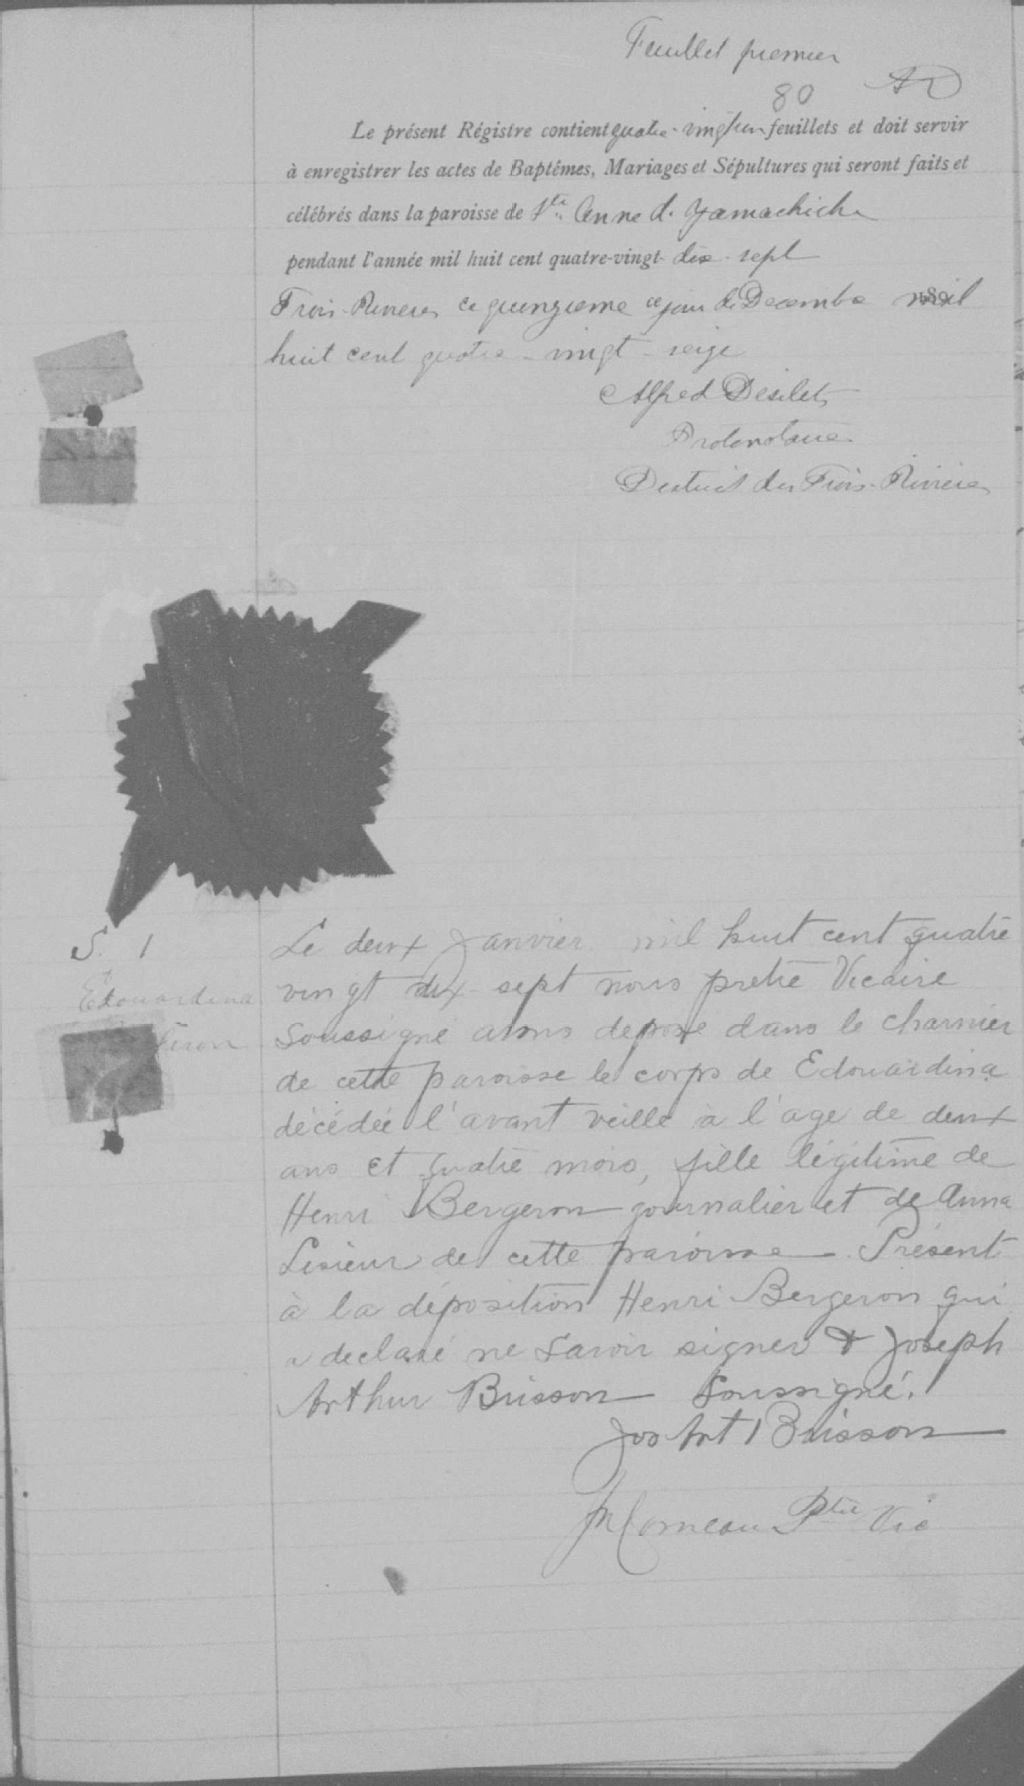 Feuillet premier
80 AD
Le présent Régistre contient quatre-vingt feuillets et doit servir
à enregistrer les actes de Baptêmes, Mariages et Sépultures qui seront faits et
célébrés dans la paroisse de Ste Anne d. Yamachiche
pendant l'année mil huit cent quatre-vingt- dix-sept
Trois-Rivieres ce quinzieme jour de Decembre mil
huit cent quatre-vingt-seize
Alfred Desilets
Protonotaire
District des Trois-Rivieres
S. 1
Edouardina
Le deux Janvier mil huit cent quatre
vingt dix-sept nous pretre Vicaire
Soussigné avons déposé dans le charnier
de cette paroisse le corps de Edouardina
décédée l'avant veille à l'age de deux
ans et quatre mois, fille légitime de
Henri Bergeron journalier et de Anna
Lesieur de cette paroisse. Présent
à la déposition Henri Bergeron qui
a declaré ne savoir signer & Joseph
Arthur Brisson Soussigné.
Jos Art Brisson
Comeau Ptre Vic